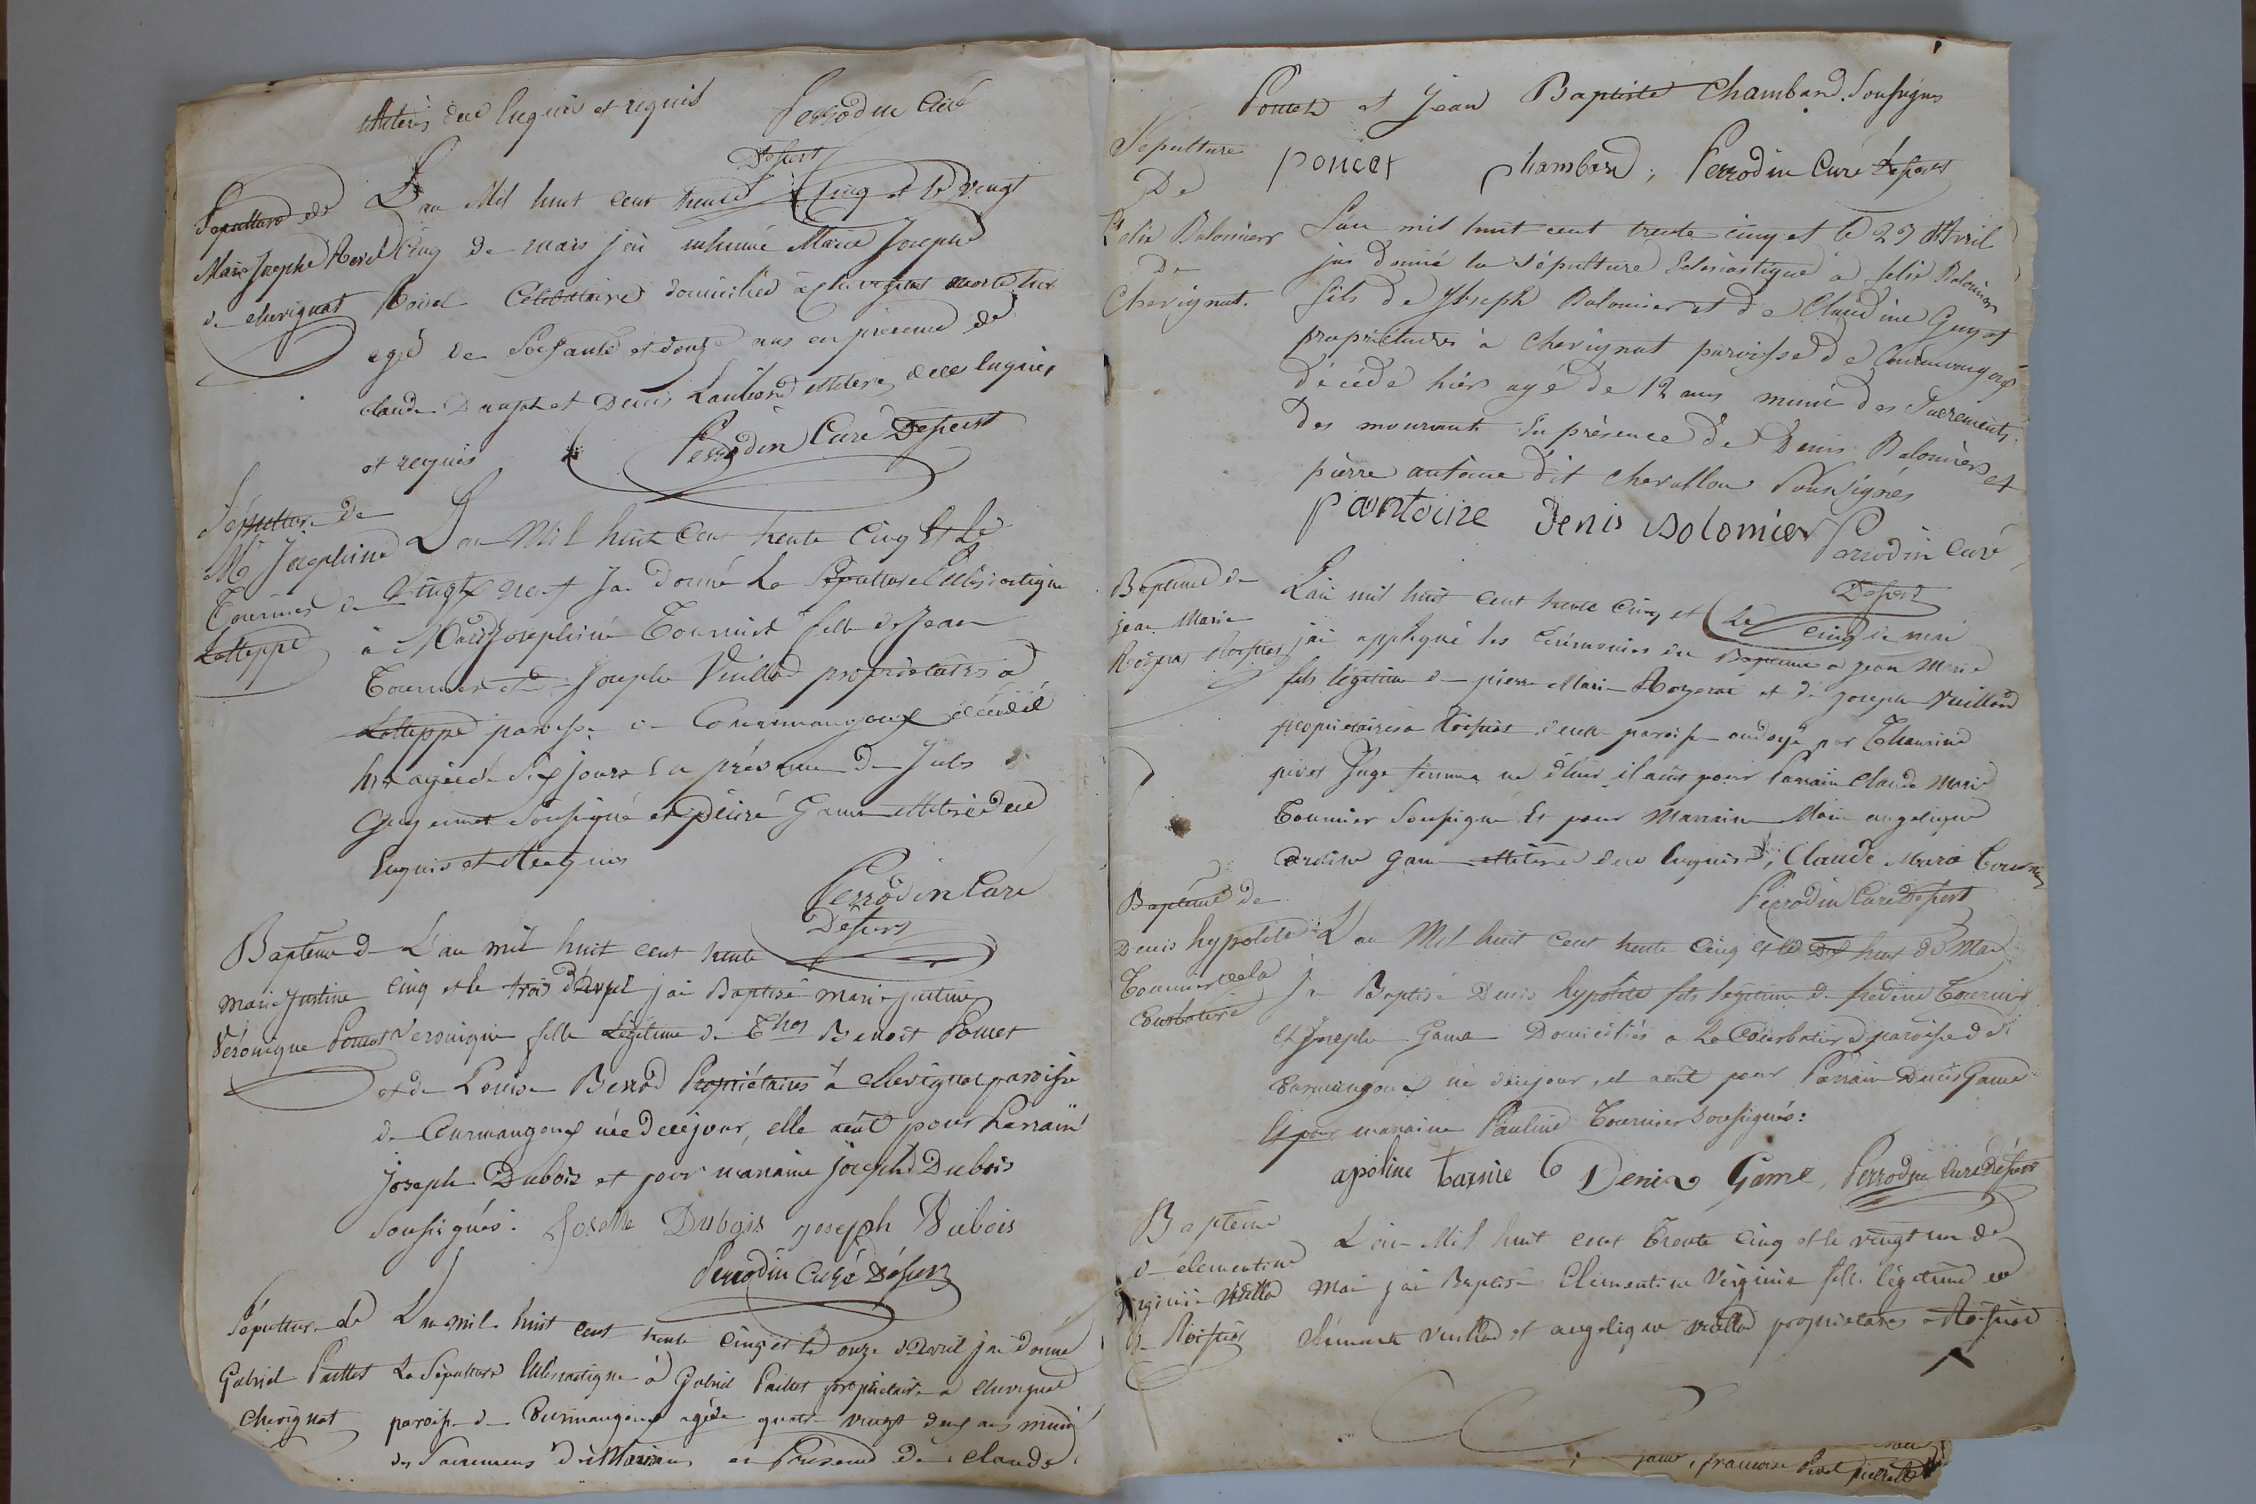 illiteré de ce enquis et requis
Perrodin Curé
Desert
Sépulture de
Marie Josephe Roird
de cherignat
L'an Mil huit cent trente Cinq et le vingt
Cinq de mars j'ai inhumé Marie Josephe
Célibataire domiciliée à cherignat morte hier
agée de Soixante et douze ans en présence de
claude et Denis illiterés de ce enquis
et requis
Perrodin Curé Desert
Sépulture de
Mie Josephine
Tournier de
Latteppe
L'an Mil huit Cent trente Cinq Et Le
Vingt neuf J'ai donné La Sépulture Ecclésiastique
à Marie Josephine Tournier fille de Jean
Tournier et de Josephe Vuillod propriétaires à
Latteppe paroisse de Courmangoux décédée
hier agée de Six jours En présence de Jules
Guyennet Soussigné et Désiré Game illiteré de ce
Enquis et Requis
Perrodin Curé
Desert
Baptême de
Marie Justine
Véronique Poncet
L'an mil huit cent trente
cinq et le trois d'avril j'ai Baptisé Marie justine
Veronique fille Légitime de Thos Benoit Poncet
et de Louise Berrod Propriétaires à cherignat paroisse
de Curmangoux née de ce jour, elle a eût pour Parrain
Joseph Dubois et pour maraine joseph Dubois
Soussignés. Josette Dubois joseph Dubois
Perrodin Curé Désert
Sépulture de
Gabriel Paillet
Cherignat
L'an mil huit cent trente Cinq et le onze d'Avril j'ai donné
La Sépulture Ecclésiastique à Gabriel Paillet propriétaire à cherignat
paroisse de Curmangoux agé de quatre vingt deux ans muni
des Sacremens des Mourans en Présence de Claude
Poncet et Jean Baptiste Chambard Soussignés
poncet chambard, Perrodin Curé Désert
Sépulture
De
Félix Bolomier
De
Cherignat.
L'an mil huit cent trente cinq et le 29 Avril
jai donné la sépulture Eclésiastique à félix Bolomier
fils de Joseph Bolomier et de Claudine Guyot
propriétaires à Cherignat paroisse de Courmangoux
décédé hiers agé de 12 ans muni des Sacrements
des mourants En présence de Denis Bolomiers et
pierre antoine dit chevallon Soussignés
p antoine Denis Bolomier Perrodin Curé
Desert
Baptême de
jean Marie
L'an mil huit cent trente cinq et Le cinq de mai
j'ai appliqué les Cérémonies du Baptême à jean Marie
fils légitime de pierre Marie et de joseph Vuillod
propriétaires à Roissiat de ce paroisse ondoyé par
Sage femme né d'hier, il a eüt pour Parrain Claude Marie
Tournier Soussigné Et pour Marraine Marie angelique
Game illiteré de ce enquise, Claude Marie Tournier
Perrodin Curé Desert
Baptême de
Denis hypolite
Tournier de la
Courbatière
L'an Mil huit cent trente Cinq et le Dix huit de Mai
J'ai Baptisé Denis hypolite fils légitime de frederic Tournier
Et Josephe Game Domiciliés à La Courbatière paroisse de
Curmangoux né de ce jour, et a eüt pour Parrain Denis Game
Et pour maraine Pauline Tournier Soussignés:
apoline Denis Game, Perrodin Curé Désert
Baptême
de clementine
virginie Vuillod
de Roissiat
L'an Mil huit cent Trente Cinq et le vingt un de
Mai j'ai Baptisé Clementine Virginie fille légitime de
Clément Vuillod et angelique Vuillod propriétaires à Roissiat
francoise